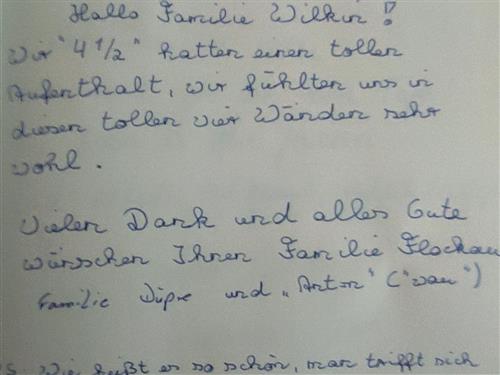 Hallo Familie Wilkin !?
Wir "4 1/2" hatten einen tollen
Aufenthalt, wir fühlten uns in
diesen tollen vier Wänden sehr
wohl.
Vielen Dank und alles Gute
wünschen Ihnen Familie Flockau
Familie Düpre und „Anton" ("wau")
Wie heißt es so schön, man trifft sich